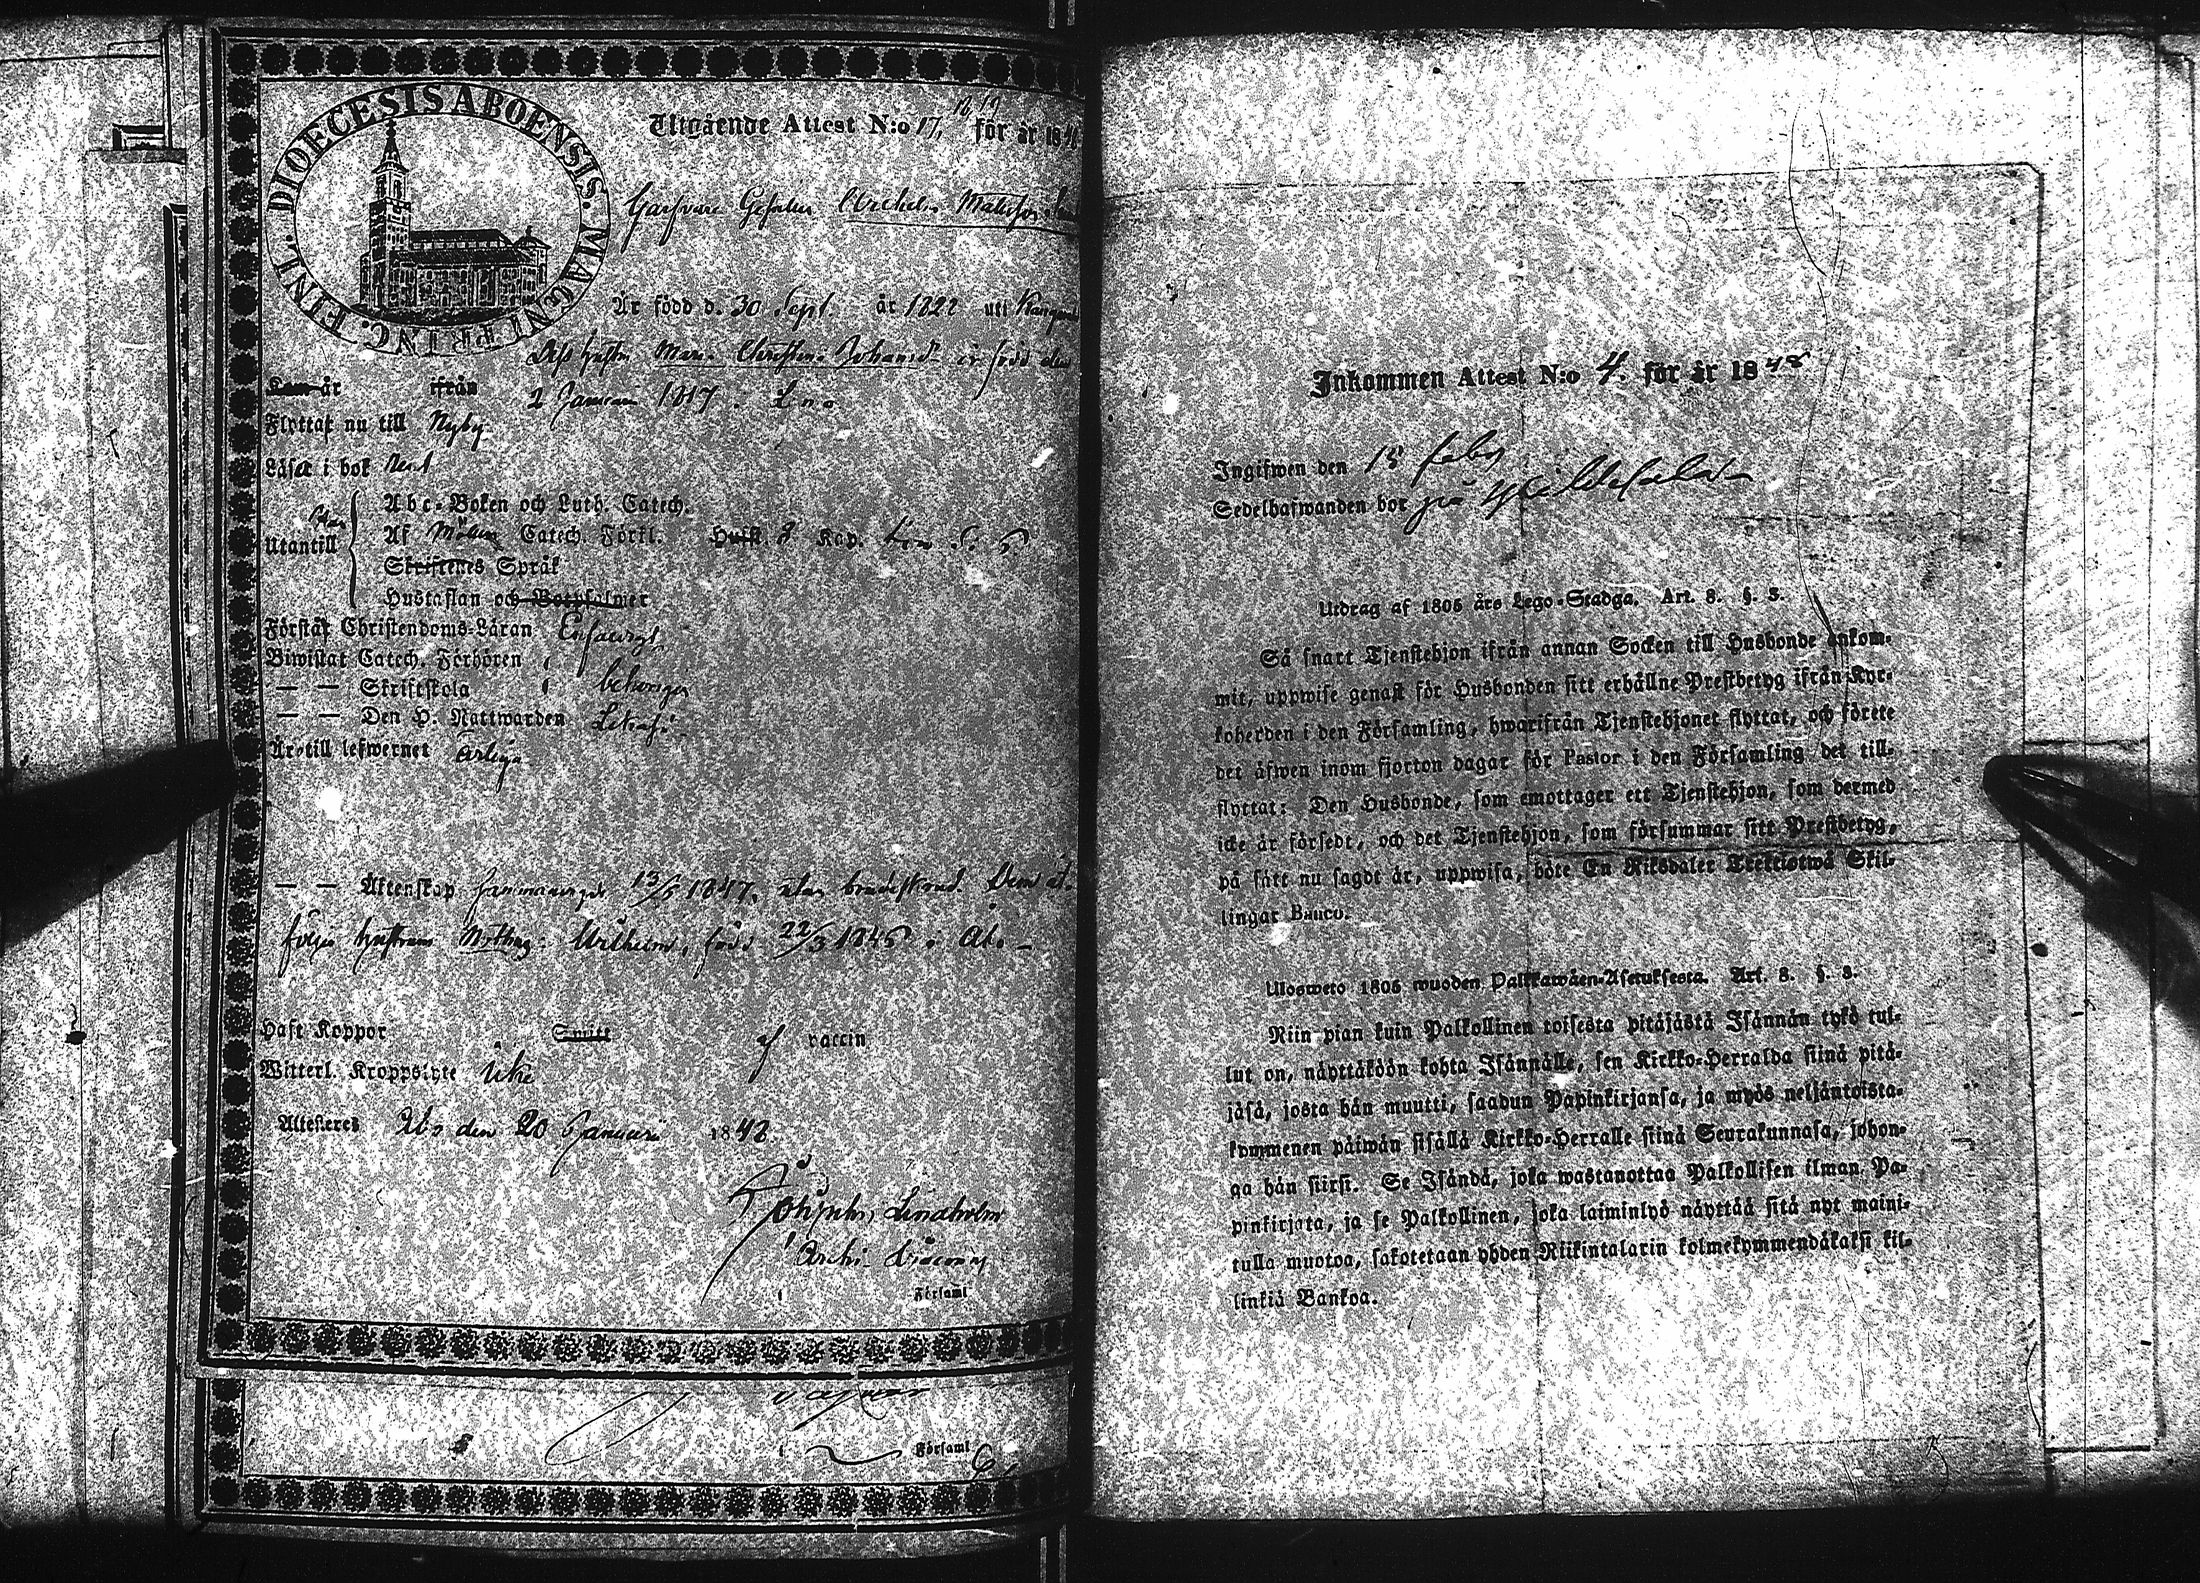 DIOECESIS ABOENSIS. MAGNI PRINC. FINL.
Utgående Attest N:o 17, 18, 19 för år 1848
Garfvare Gesällen Wilhelm Matsson
Är född d. 30 Sept. år 1822 uti
Dess hustru Maria Christina Johansd:r är född den
2 Januarii 1817 i
Kom år ifrån
Flyttat nu till Nyby
Läser i bok
Utantill
Abc-Boken och Luth. Catech.
Af Catech. Förkl. Huist. 8 Kap.
Skriftenes Språk
Hustaflan och Botpsalmer
Förstår Christendoms-Läran Enfaldigt
Biwistat Catech. Förhören
— — Skriftskola behörigen
— — Den H. Nattwarden
Är till lefwernet ärlig
— — Äktenskap 13/5 1847. utan
följer hustruns Wilhelm, född 22/3 1845 i Åbo —
Haft Koppor Smitt af vaccin
Witterl. Kroppslyte Icke
Attesteres Åbo den 20 Januarii 1848
Lindholm
Archi-Diacon
i Församl
i Församl
Inkommen Attest N:o 4. för år 1848
Ingifwen den 15 feby
Sedelhafwanden bor på
Utdrag af 1805 års Lego-Stadga. Art. 8. §. 3.
Så snart Tjenstehjon ifrån annan Socken till Husbonde ankom-
mit, uppwise genast för Husbonden sitt erhållne Prestbetyg ifrån Kyr-
koherden i den Församling, hwarifrån Tjenstehjonet flyttat, och förete
det äfwen inom fjorton dagar för Pastor i den Församling det till-
flyttat: Den Husbonde, som emottager ett Tjenstehjon, som dermed
icke är försedt, och det Tjenstehjon, som försummar sitt Prestbetyg,
på sätt nu sagdt är, uppwisa, böte En Riksdaler Trettiotwå Skil-
lingar Banco.
Ulosweto 1805 wuoden Palkkawäen-Asetuksesta. Art. 8. §. 3.
Niin pian kuin Palkollinen toisesta pitäjästä Isännän tykö tul-
lut on, näyttäköön kohta Isännälle, sen Kirkko-Herralda siinä pitä-
jäsä, josta hän muutti, saadun Papinkirjansa, ja myös neljäntoista-
kymmenen päiwän sisällä Kirkko-Herralle siinä Seurakunnasa, johon-
ga hän siirsi. Se Isändä, joka wastanottaa Palkollisen ilman Pa-
pinkirjata, ja se Palkollinen, joka laiminlyö näyttää sitä nyt maini-
tulla muotoa, sakotetaan yhden Riikintalarin kolmekymmendäkaksi kil-
linkiä Bankoa.